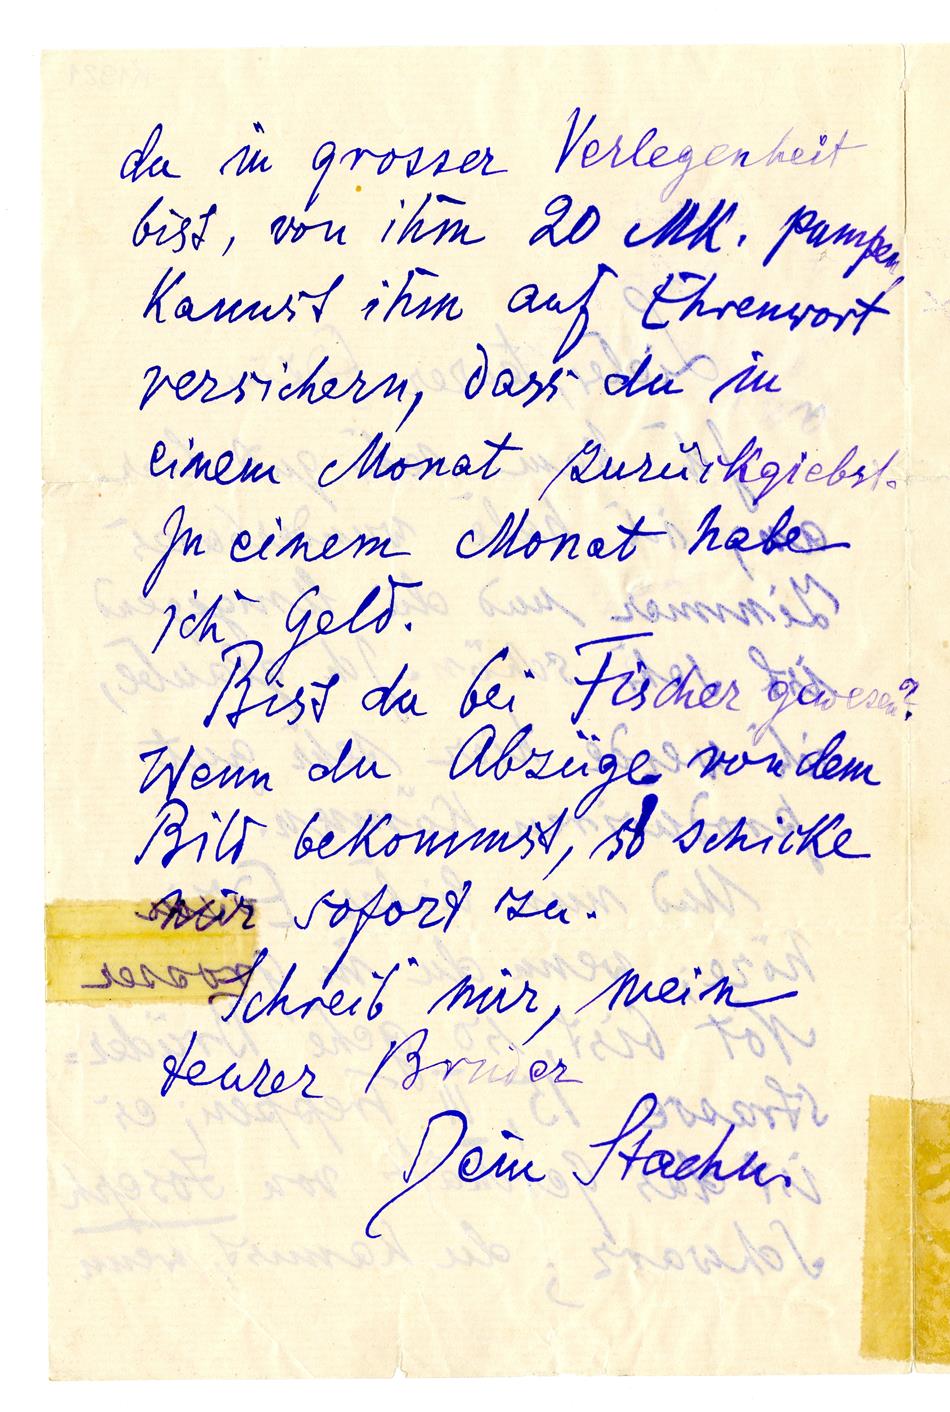 du in grosser Verlegenheit
bist, von ihm 20 MK. pumpen,
Kannst ihm auf Ehrenwort
versichern, dass du in
einem Monat zurückgiebst.
In einem Monat habe
ich Geld.
Bist du bei Fischer gewesen?
Wenn du Abzüge von dem
Bild bekommst, so schicke
mir sofort zu.
Schreib mir, mein
teurer Bruder
Dein Stachu.